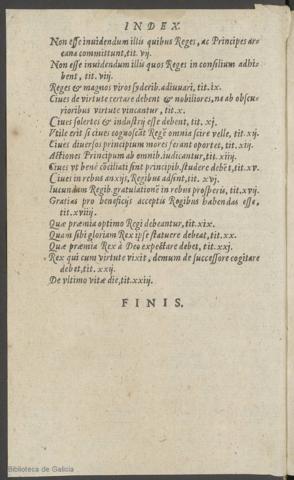 INDEX.
Non esse inuidendum illis quibus Reges, ac Principes ar-
cana committunt, tit. vij.
Non esse inuidendum illis quos Reges in consilium adhi-
bent, tit. viij.
Reges & magnos viros syderib. adiuuari, tit. ix.
Ciues de virtute certare debent & nobiliores, ne ab obscu-
rioribus virtute vincantur, tit. x.
Ciues solertes & industrij esse debent, tit. xj.
Vtile erit si ciues cognoscāt Regē omnia scire velle, tit. xij.
Ciues diuersos principium mores ferant oportet, tit. xiij.
Actiones Principum ab omnib. iudicantur, tit. xiiij.
Ciues vt bene cōciliati sint principib. studere debēt, tit. xv.
Ciues in rebus anxijs, Regibus adsint, tit. xvj.
Iucundam Regib. gratulationē in rebus prosperis, tit. xvij.
Gratias pro beneficijs acceptis Regibus habendas esse,
tit. xviiij.
Quæ præmia optimo Regi debeantur, tit. xix.
Quam sibi gloriam Rex ipse statuere debeat, tit. xx.
Quæ præmia Rex à Deo expectare debet, tit. xxj.
Rex qui cum virtute vixit, demum de successore cogitare
debet, tit. xxij.
De vltimo vitæ die, tit. xxiij.
FINIS.
Biblioteca de Galicia